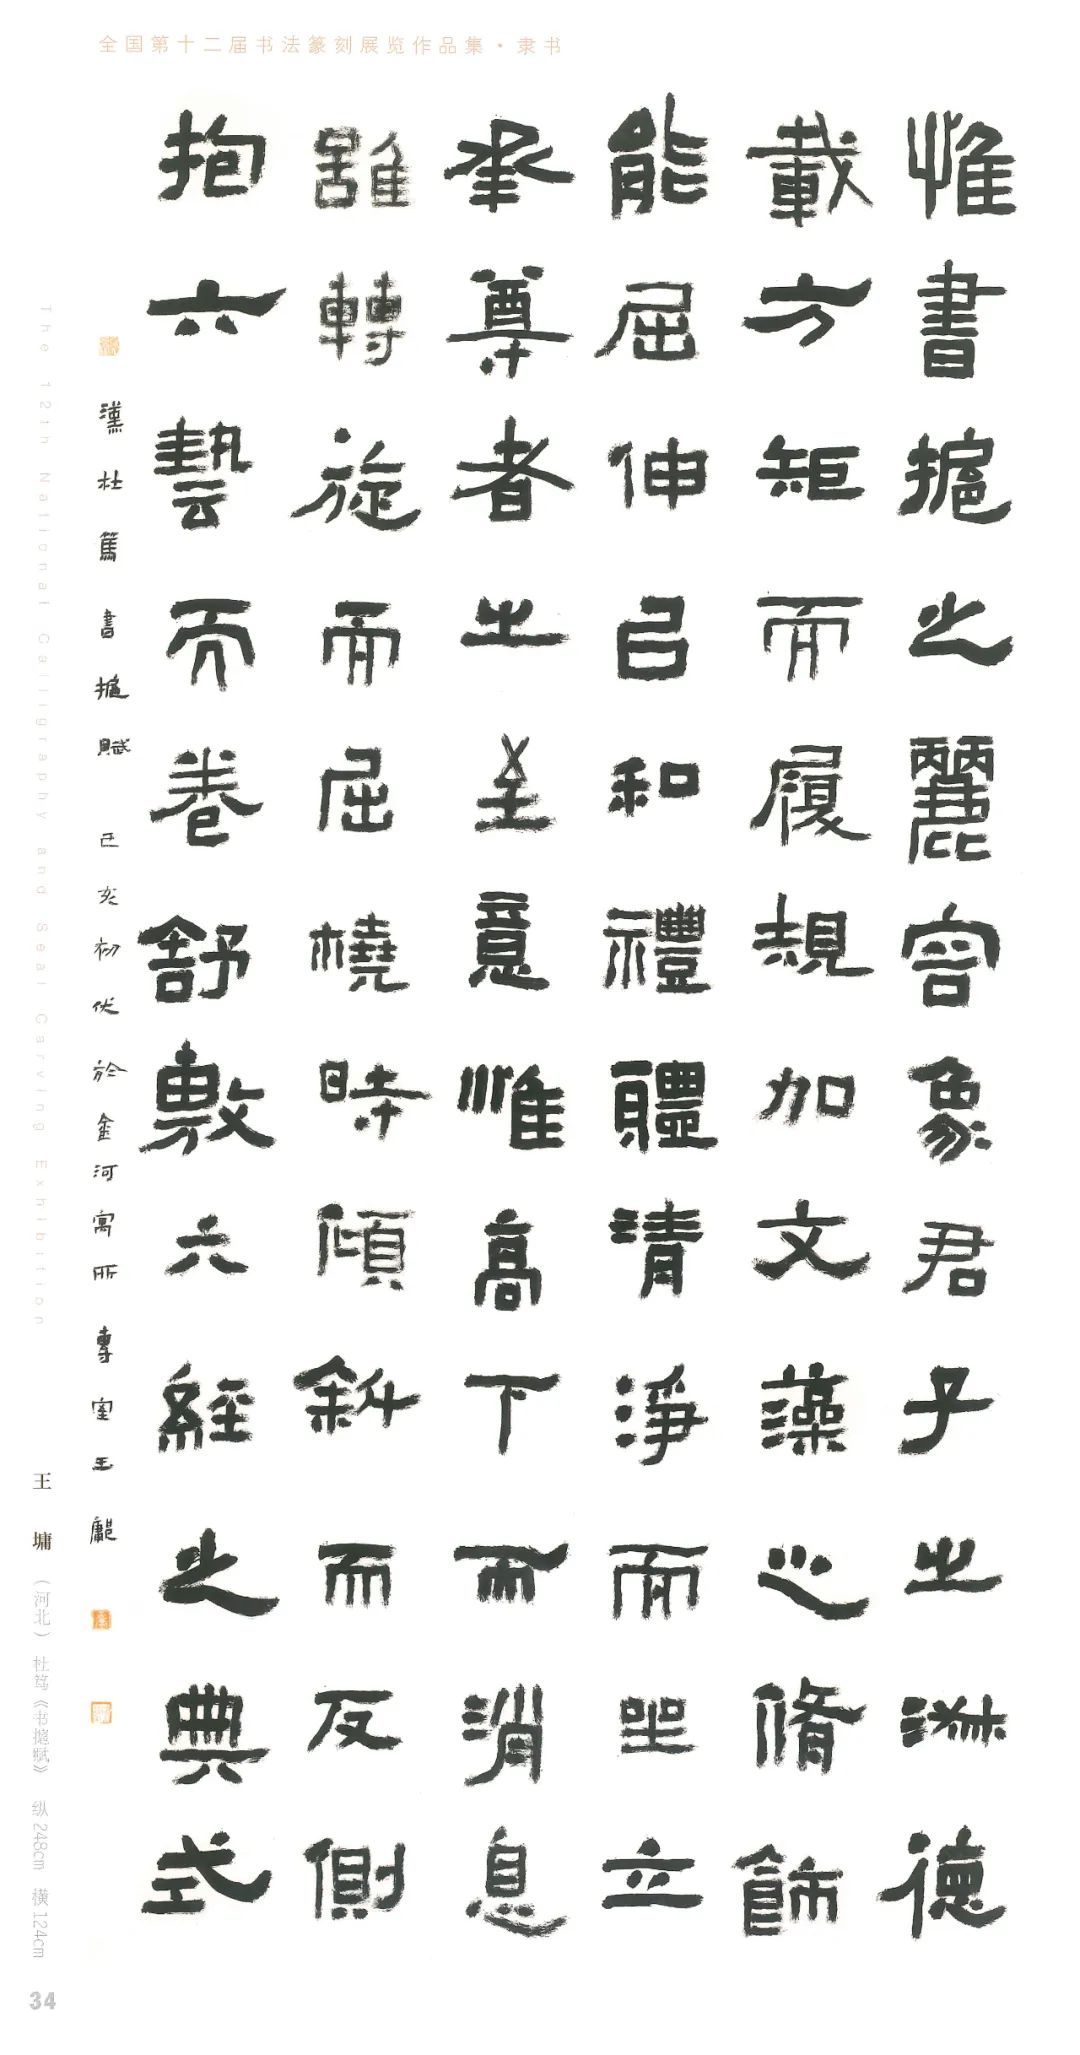 全国第十二届书法篆刻展览作品集·隶书
惟書攄之麗容象君子之淑德
載方矩而履規加文藻之脩飾
能屈伸㠯和禮體清淨而坐立
承尊者之至意惟高下而消息
雖轉旋而屈橈時傾斜而反側
抱六藝而卷舒敷六經之典式
漢杜篤書攄賦 己亥初伏於金河寓所專室王鄘
The 12th National Calligraphy and Seal Carving Exhibition
王墉（河北）杜笃《书攄赋》 纵248cm 横124cm
34